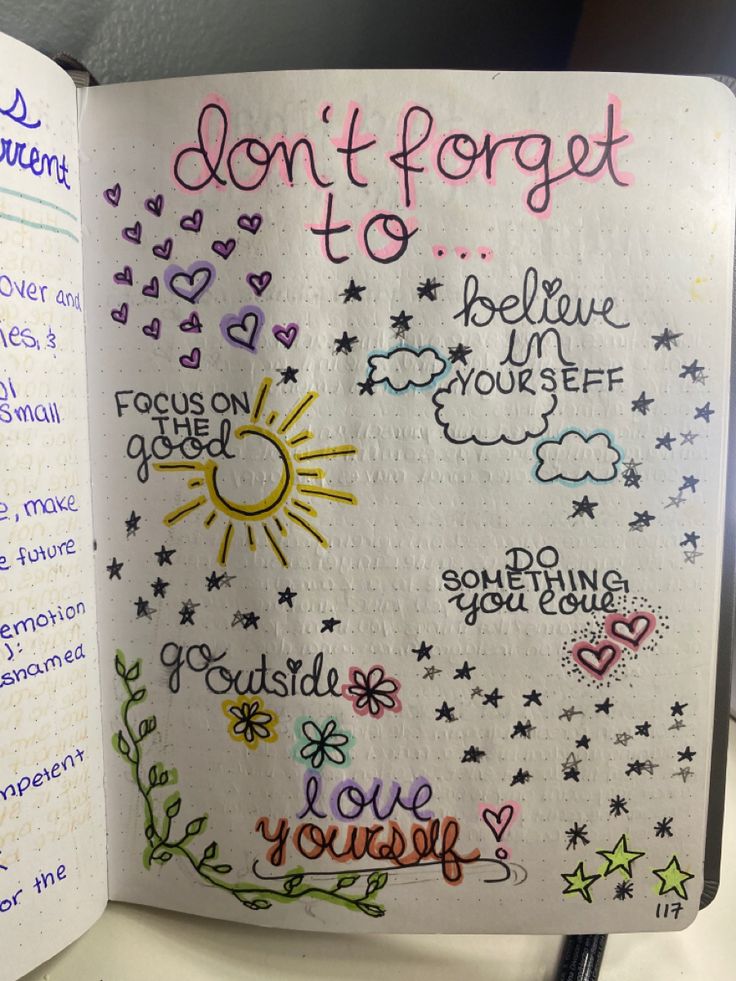 s
rrent
over and
ies, &
small
e, make
e future
emotion
):
shamed
mpetent
or the
don't forget
to...
believe
in
YOURSEFF
FOCUS ON
THE
good
DO
SOMETHING
you love
go outside
love
yourself!
117